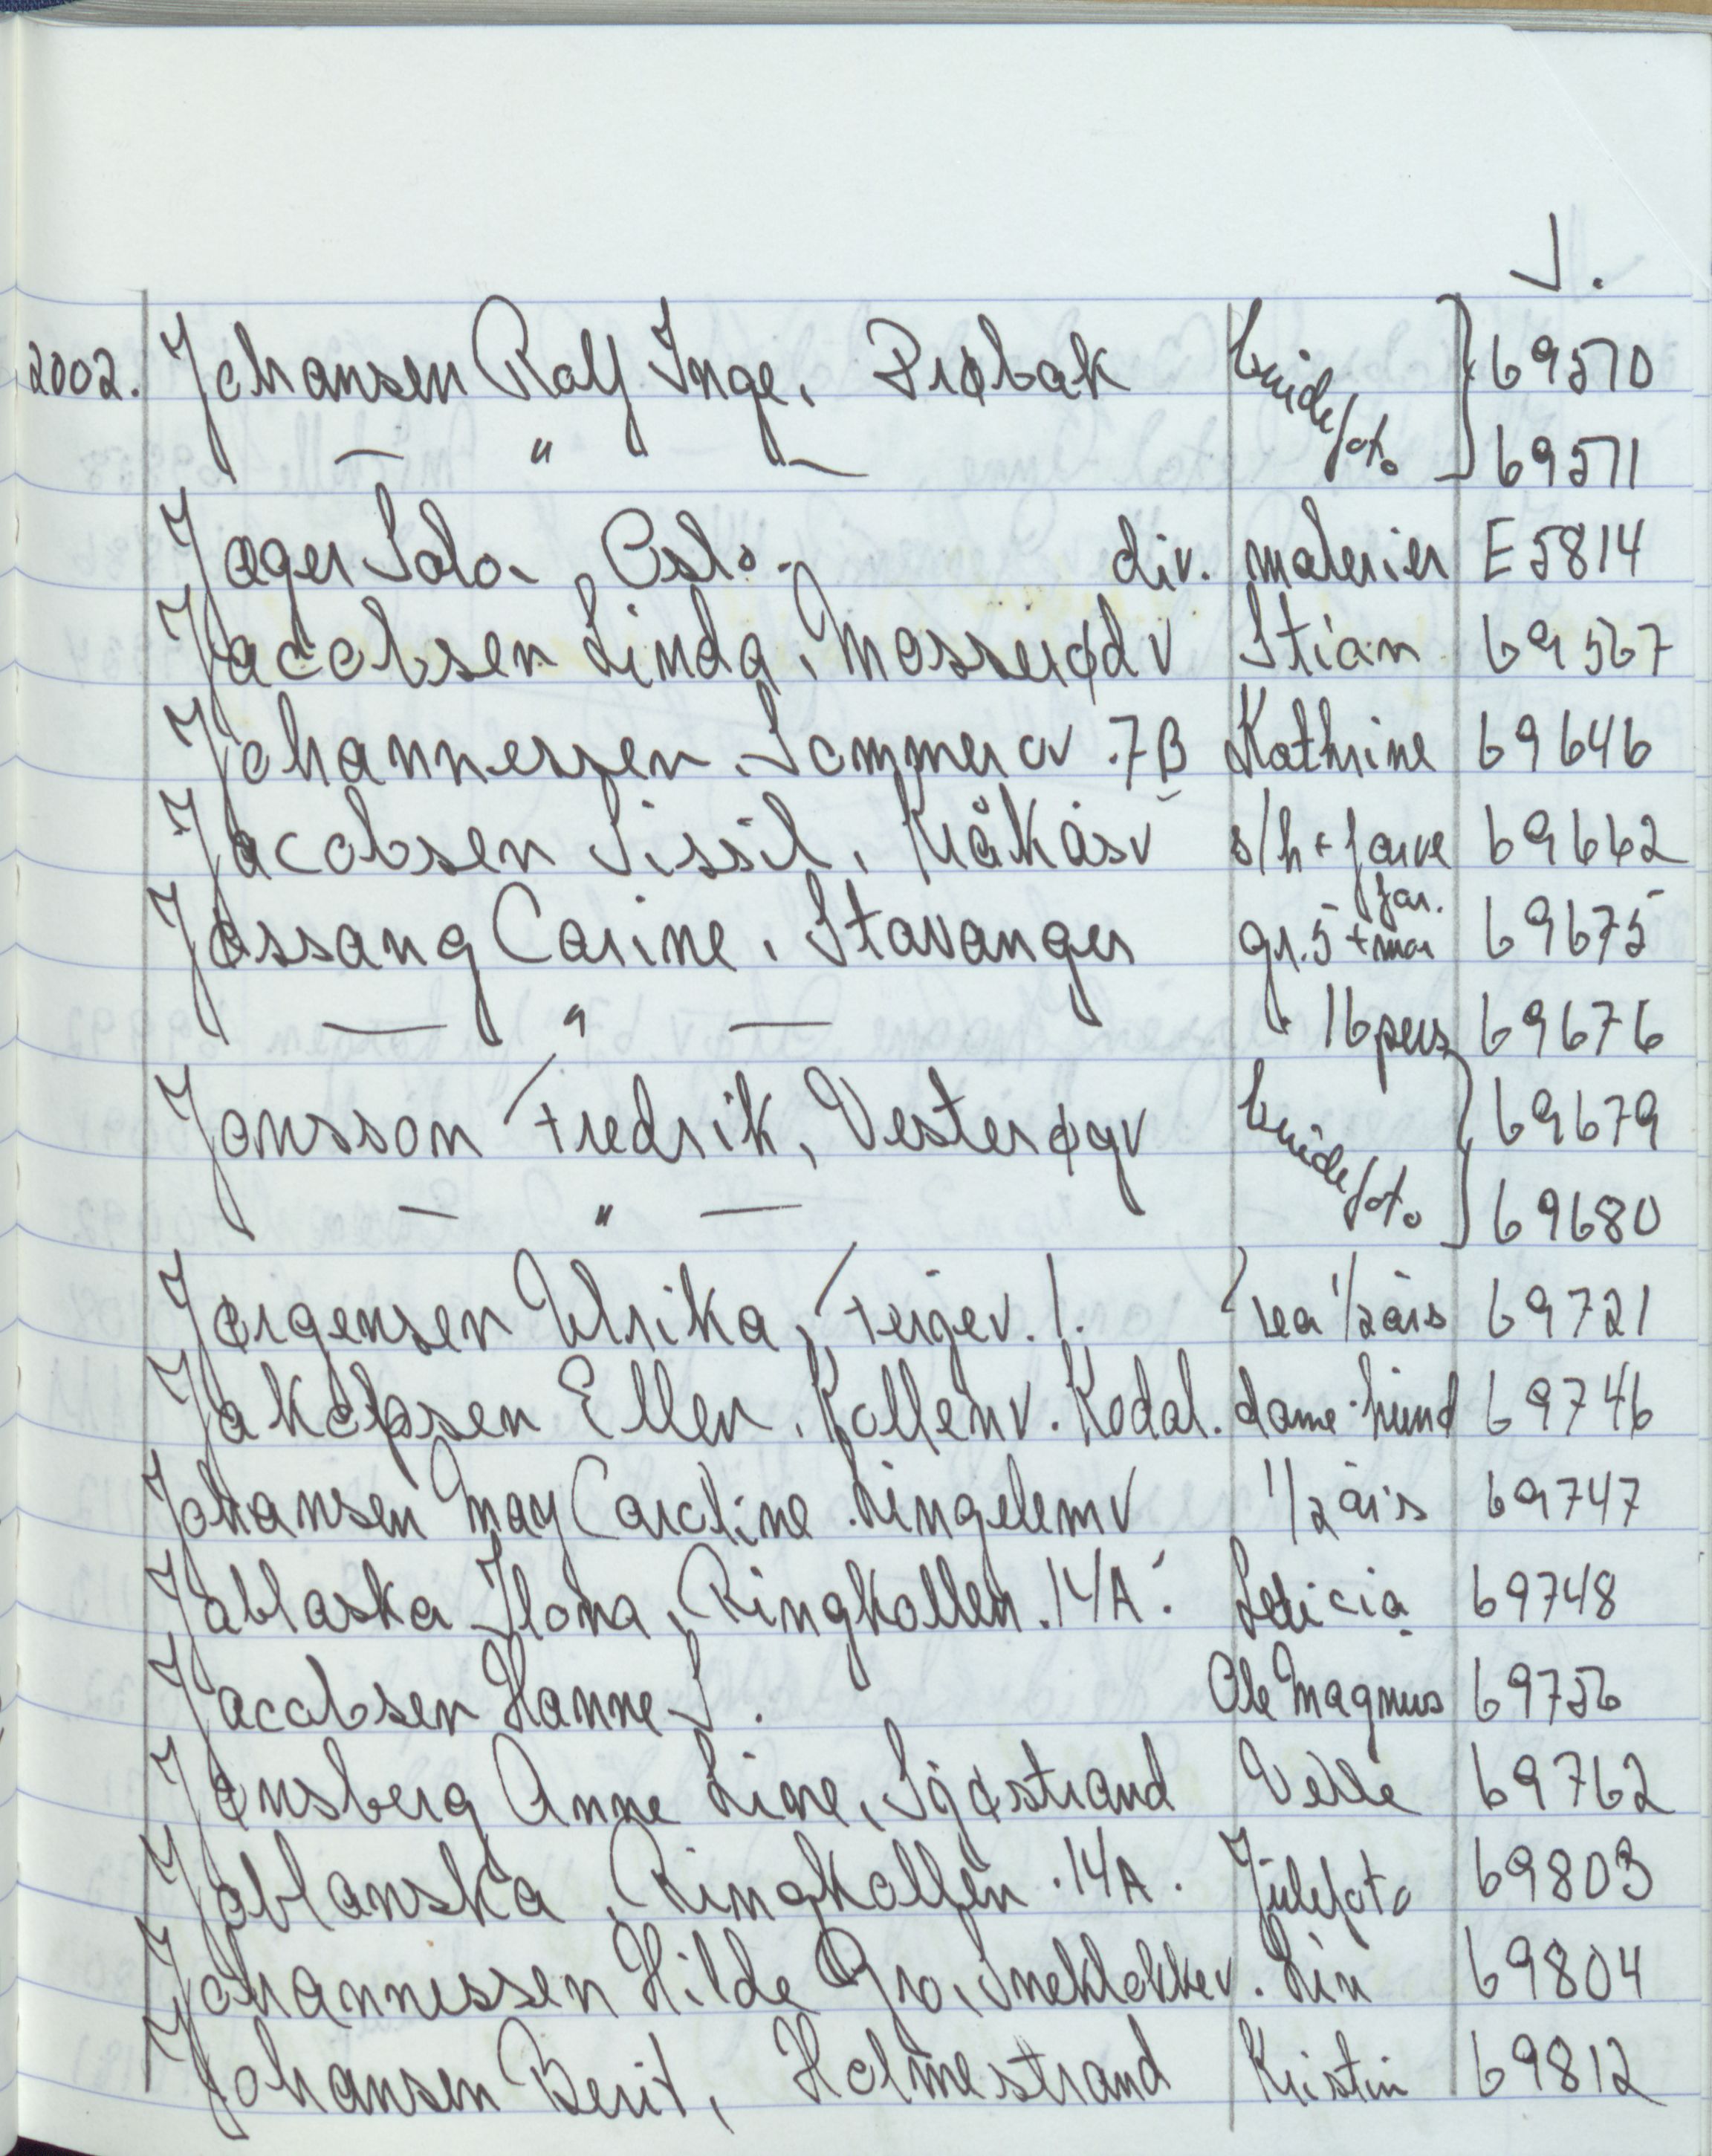 J.
2002. Johansen Rolf Inge, Drøbak brudefoto 69570
— " — 69571
Jager Solo, Oslo. div. malerier E5814
Jacobsen Linda, Mosserødv Stian 69567
Johannessen, Sommerov. 7B Kathrine 69646
Jacobsen Sissil, Kråkåsv s/h + farve 69662
Jøssang Carine, Stavanger gr. 5 + mor far. 69675
— " — " 16 pers 69676
Jonsson Fredrik, Vesterøyv brudefoto 69679
— " — 69680
Jørgensen Ulrika, Feigev. 1. Lea 1/2 års 69721
Jakobsen Ellen, Kollenv. Kodal. dame-hund 69746
Johansen May Caroline. Lingelemv 1/2 års 69747
Jablaska Ilona, Ringkollen. 14A. Leticia 69748
Jacobsen Hanne S. Ole Magnus 69756
Jønsberg Anne Line, Sjøstrand Velle 69762
Joblanska, Ringkollen. 14A. Julefoto 69803
Johannessen Hilde Gro, Sneklokkev. Lin 69804
Johansen Berit, Holmestrand Kristin 69812